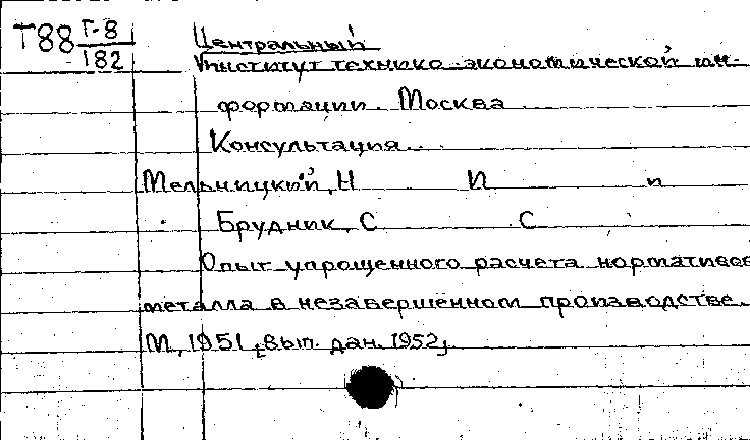 Т88 Г-8
182
Центральный
институт технико-экономической ин-
формации. Москва
Консультация.
Мельницкий, Н И и
Брудник, С С
Опыт упрощенного расчета нормативов
металла в незавершенном производстве.
М, 1951 [вып. дан. 1952]